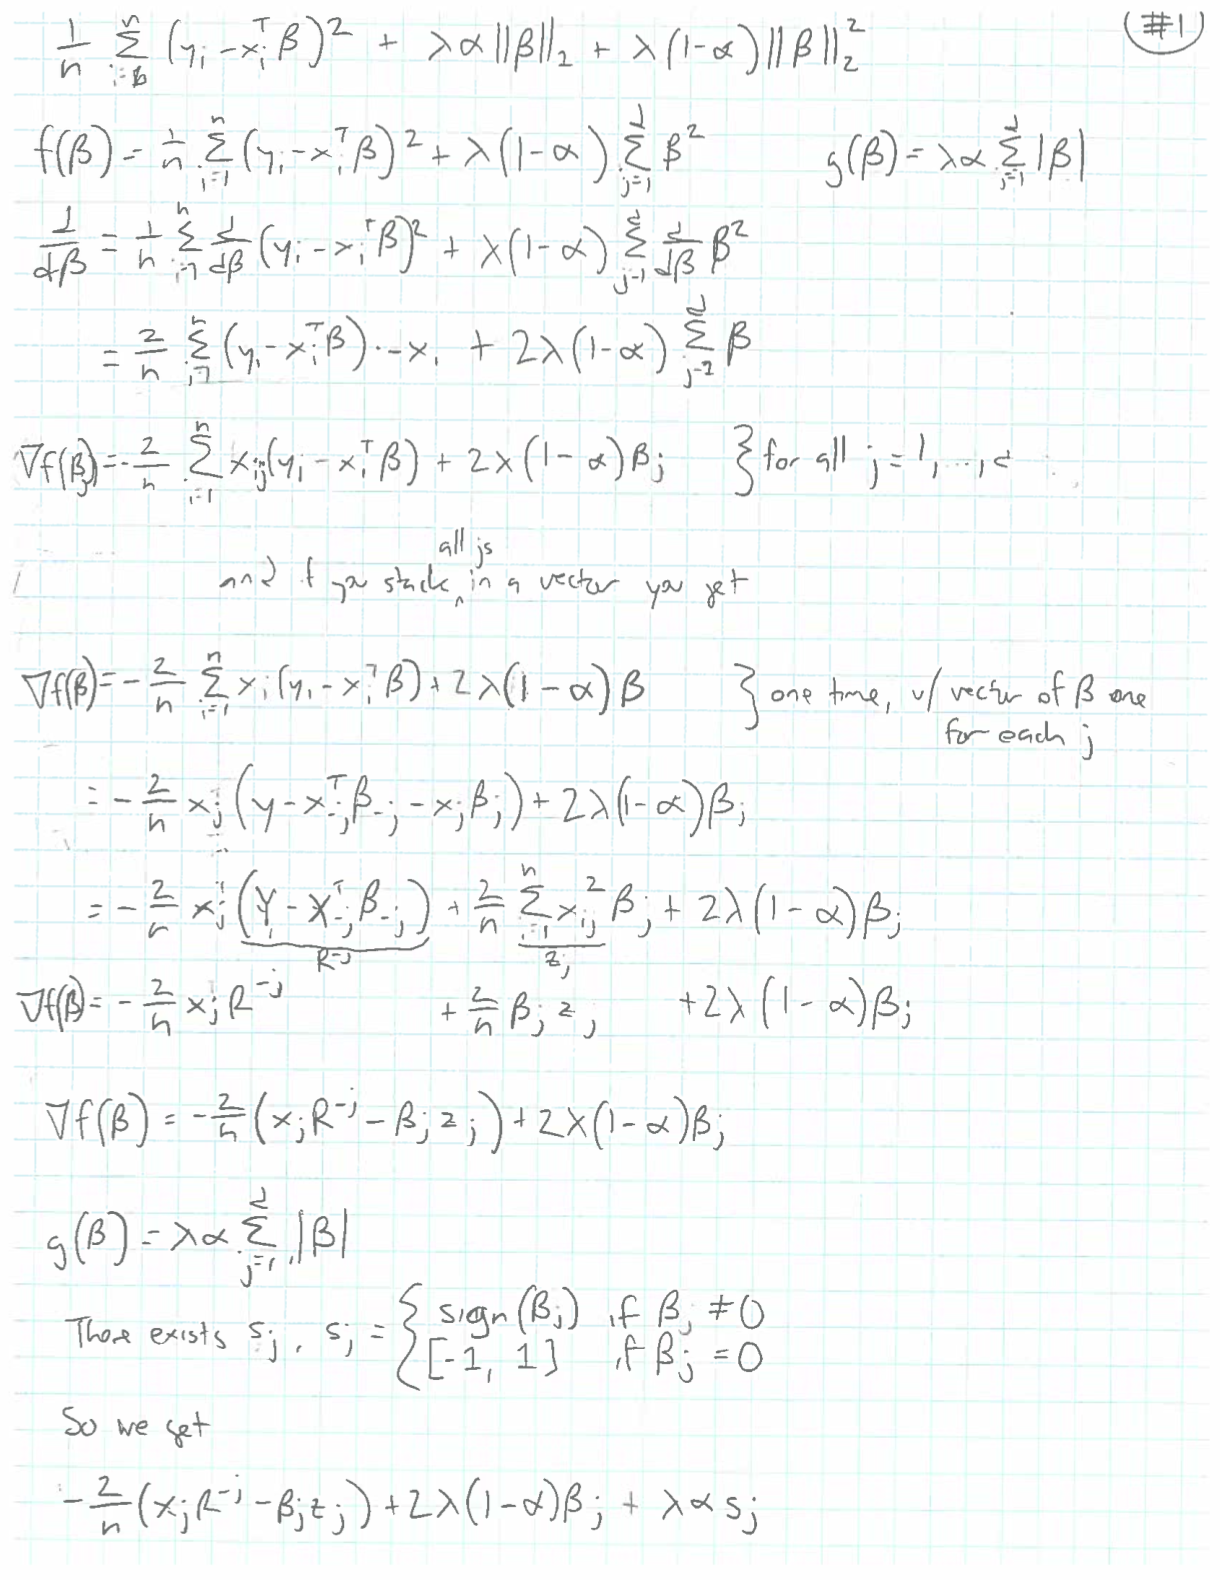 #1
1/n Σ_{i=1}^{n} (y_i - x_i^T β)^2 + λα||β||_2 + λ(1-α)||β||_2^2
f(β) = 1/n Σ_{i=1}^{n} (y_i - x_i^T β)^2 + λ(1-α) Σ_{j=1}^{d} β^2 g(β) = λα Σ_{j=1}^{d} |β|
d/dβ = 1/n Σ_{i=1}^{n} d/dβ (y_i - x_i^T β)^2 + λ(1-α) Σ_{j=1}^{d} d/dβ β^2
= 2/n Σ_{i=1}^{n} (y_i - x_i^T β) · -x_i + 2λ(1-α) Σ_{j=1}^{d} β
∇f(β_j) = -2/n Σ_{i=1}^{n} x_{ij} (y_i - x_i^T β) + 2λ(1-α) β_j } for all j = 1, ..., d
and if you stack all js in a vector you get
∇f(β) = -2/n Σ_{i=1}^{n} x_i (y_i - x_i^T β) + 2λ(1-α) β } one time, w/ vector of β one
for each j
= -2/n x_j (y - x_{-j}^T β_{-j} - x_j β_j) + 2λ(1-α) β_j
= -2/n x_j (Y - X_{-j}^T β_{-j}) + 2/n Σ_{i=1}^{n} x_{ij}^2 β_j + 2λ(1-α) β_j
R^{-j} z_j
∇f(β) = -2/n x_j R^{-j} + 2/n β_j z_j + 2λ(1-α) β_j
∇f(β) = -2/n (x_j R^{-j} - β_j z_j) + 2λ(1-α) β_j
g(β) = λα Σ_{j=1}^{d} |β|
There exists s_j, s_j = { sign(β_j) if β_j ≠ 0
[-1, 1] if β_j = 0
So we get
-2/n (x_j R^{-j} - β_j z_j) + 2λ(1-α) β_j + λα s_j